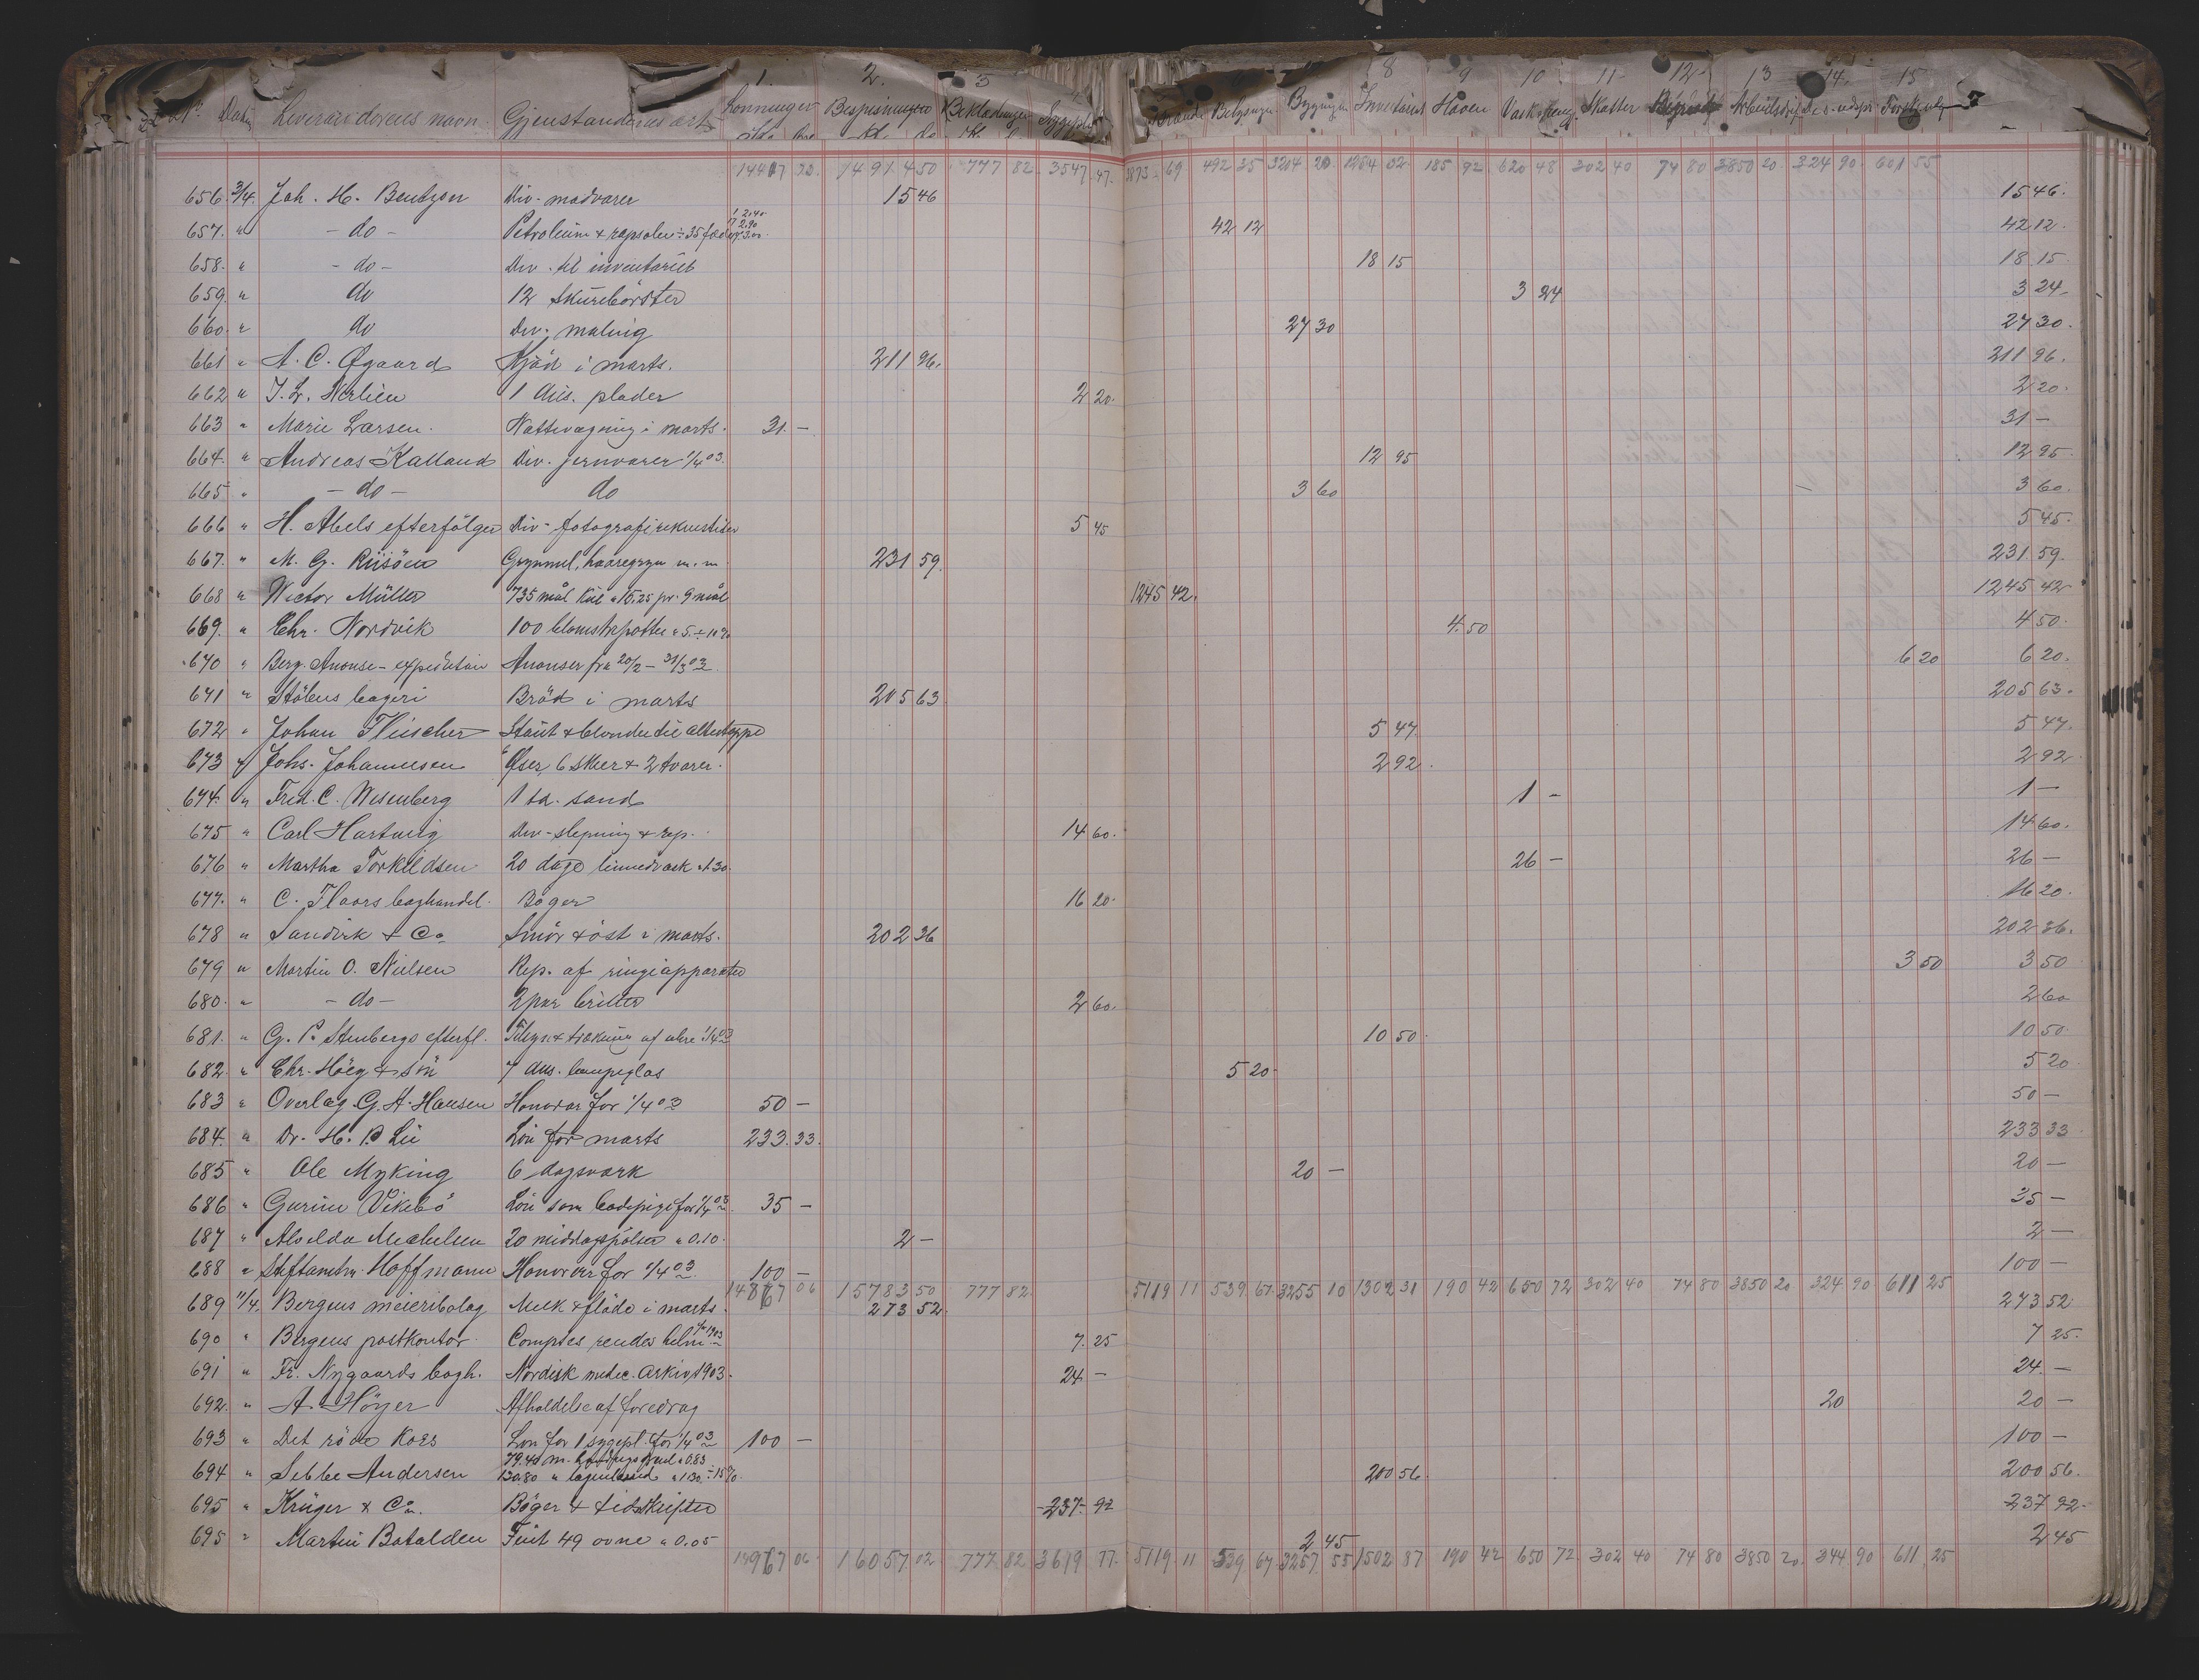 1. 2. 3 8 9 10 11 12 13 14. 15
Nº Datum Leverandörens navn. Gjenstandenes art Lönninger Bespisningen Beklædninger Sygepl Brænde Belysnigen Bygnigen Inventariet Haven Vask Skatter Arbeidsdrift Forskjellig
14417 73. 1491450 777 82. 3547 47. 3873 69 492 35 3204 20 1264 32 185 92 620 48 302 40 74 80 3850 20. 324 90. 601 55
656. 3/4. Joh. H. Bentzon Div. madvarer 15 46 15 46.
657. " - do - Petroleum & rapsolie ÷ 35 fade 42 12 42 12.
658. " - do - Div. til inventariet 18 15 18 15
659. " do 12 Skurebörster 3 24 3 24
660. " do Div. maling 27 30 27 30.
661 " A. C. Øgaard Kjöd i marts. 211 96. 211 96.
662 " J. L. Nerlien 1 dus. plader 2 20. 2 20.
663 " Marie Larsen. Nattevagning i marts. 31 - 31 -
664. " Andreas Kalland Div. jernvarer 1/4 03. 12 95 12 95
665 " - do - do 3 60 3 60.
666 " H. Abels efterfölger Div. fotografirekvisiter 5 45 5 45.
667. " M. G. Riisöen Grynmel, havregryn m. m. 231 59. 231 59.
668 " Victor Müller 735 mål kul à 15.25 pr. 9 mål 1245 42. 1245 42
669. " Chr. Nordvik 100 blomsterpotter à 5. ÷ 10 % 4.50 4 50.
670 " Berg. Anonse-expedition Anonser fra 20/2 - 31/3 03 6 20 6 20.
671 " Stöbers bageri Bröd i marts 205 63 205 63.
672 " Johan Fleischer Staut & blonder til altertæppe 5 47. 5 47.
673 " Johs. Johannesen 6 Öser, 6 skeer & 2 tvarer. 2 92. 2 92
674. " Fred. C. Wesenberg 1 td. sand 1 - 1 -
675 " Carl Hartwig Div. slepning & rep. 14 60. 14 60.
676 " Martha Torkildsen 20 dage linnedvask à 1.30. 26 - 26 -
677. " C. Floors boghandel. Böger 16 20. 16 20.
678 " Sandvik & Co. Smör & ost i marts. 202 36 202 36.
679 " Martin O. Nielsen Rep. af ringeapparater 3 50 3 50
680. " - do - 2 par briller 2 60. 2 60
681. " G. P. Stenbergs efterfl. Tilsyn & trækning af uhre 1/4 03 10 50. 10 50.
682. " Chr. Höeg & Sön 7 dus. lampeglas 5 20. 5 20
683 " Overlæg. G. A. Hansen Honorar for 1/4 03 50 - 50 -
684. " Dr. H. P. Lie Lön for marts 233. 33. 233 33
685 " Ole Myking 6 dagsværk 20 - 20 -
686 " Gurine Vikebö Lön som badepige for 1/4 03. 35 - 35 -
687 " Alvilda Michelsen 20 middagspölser à 0.10. 2 - 2 -
688 " Stiftamtm. Hoffmann Honorar for 1/4 03. 100 - 100 -
14867 06 15783 50 777 82. 5119 11 539 67 3255 10 1302 31 190 42 650 72 302 40 74 80 3850 20 324 90 611 25
689 11/4. Bergens meieribolag Melk & flöde i marts. 273 52. 273 52
690 " Bergens postkontor. Comptes rendes 7. 25 7 25.
691 " Fr. Nygaards bogh. Nordisk medic. arkiv 1903. 24 - 24 -
692. " A. Höyer Afholdelse af foredrag 20 20 -
693 " Det röde Kors Lön for 1 sygepl. for 1/4 03 100 - 100 -
694 " Sebbe Andersen 130.80 " lagenlærred à 1.30. ÷ 15 %. 200 56. 200 56.
695 " Krüger & Co. Böger & tidsskrifter 237. 92 237 92.
695 " Martin Batalden Feiet 49 ovne à 0.05 2 45 2 45
14967 06. 16057 02 777. 82 3619 77. 5119 11 539 67 3257 55 1502 87 190 42 650 72 302 40 74 80 3850 20. 344 90 611 25